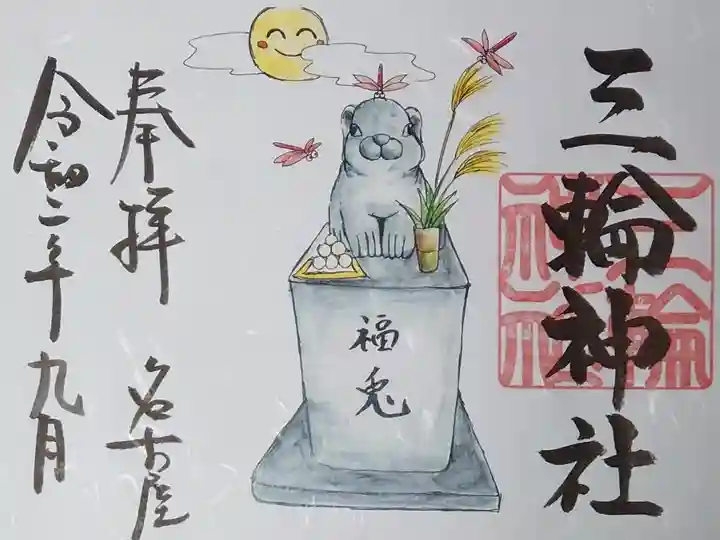 三輪神社
福兎
奉拝 名古屋
令和二年九月